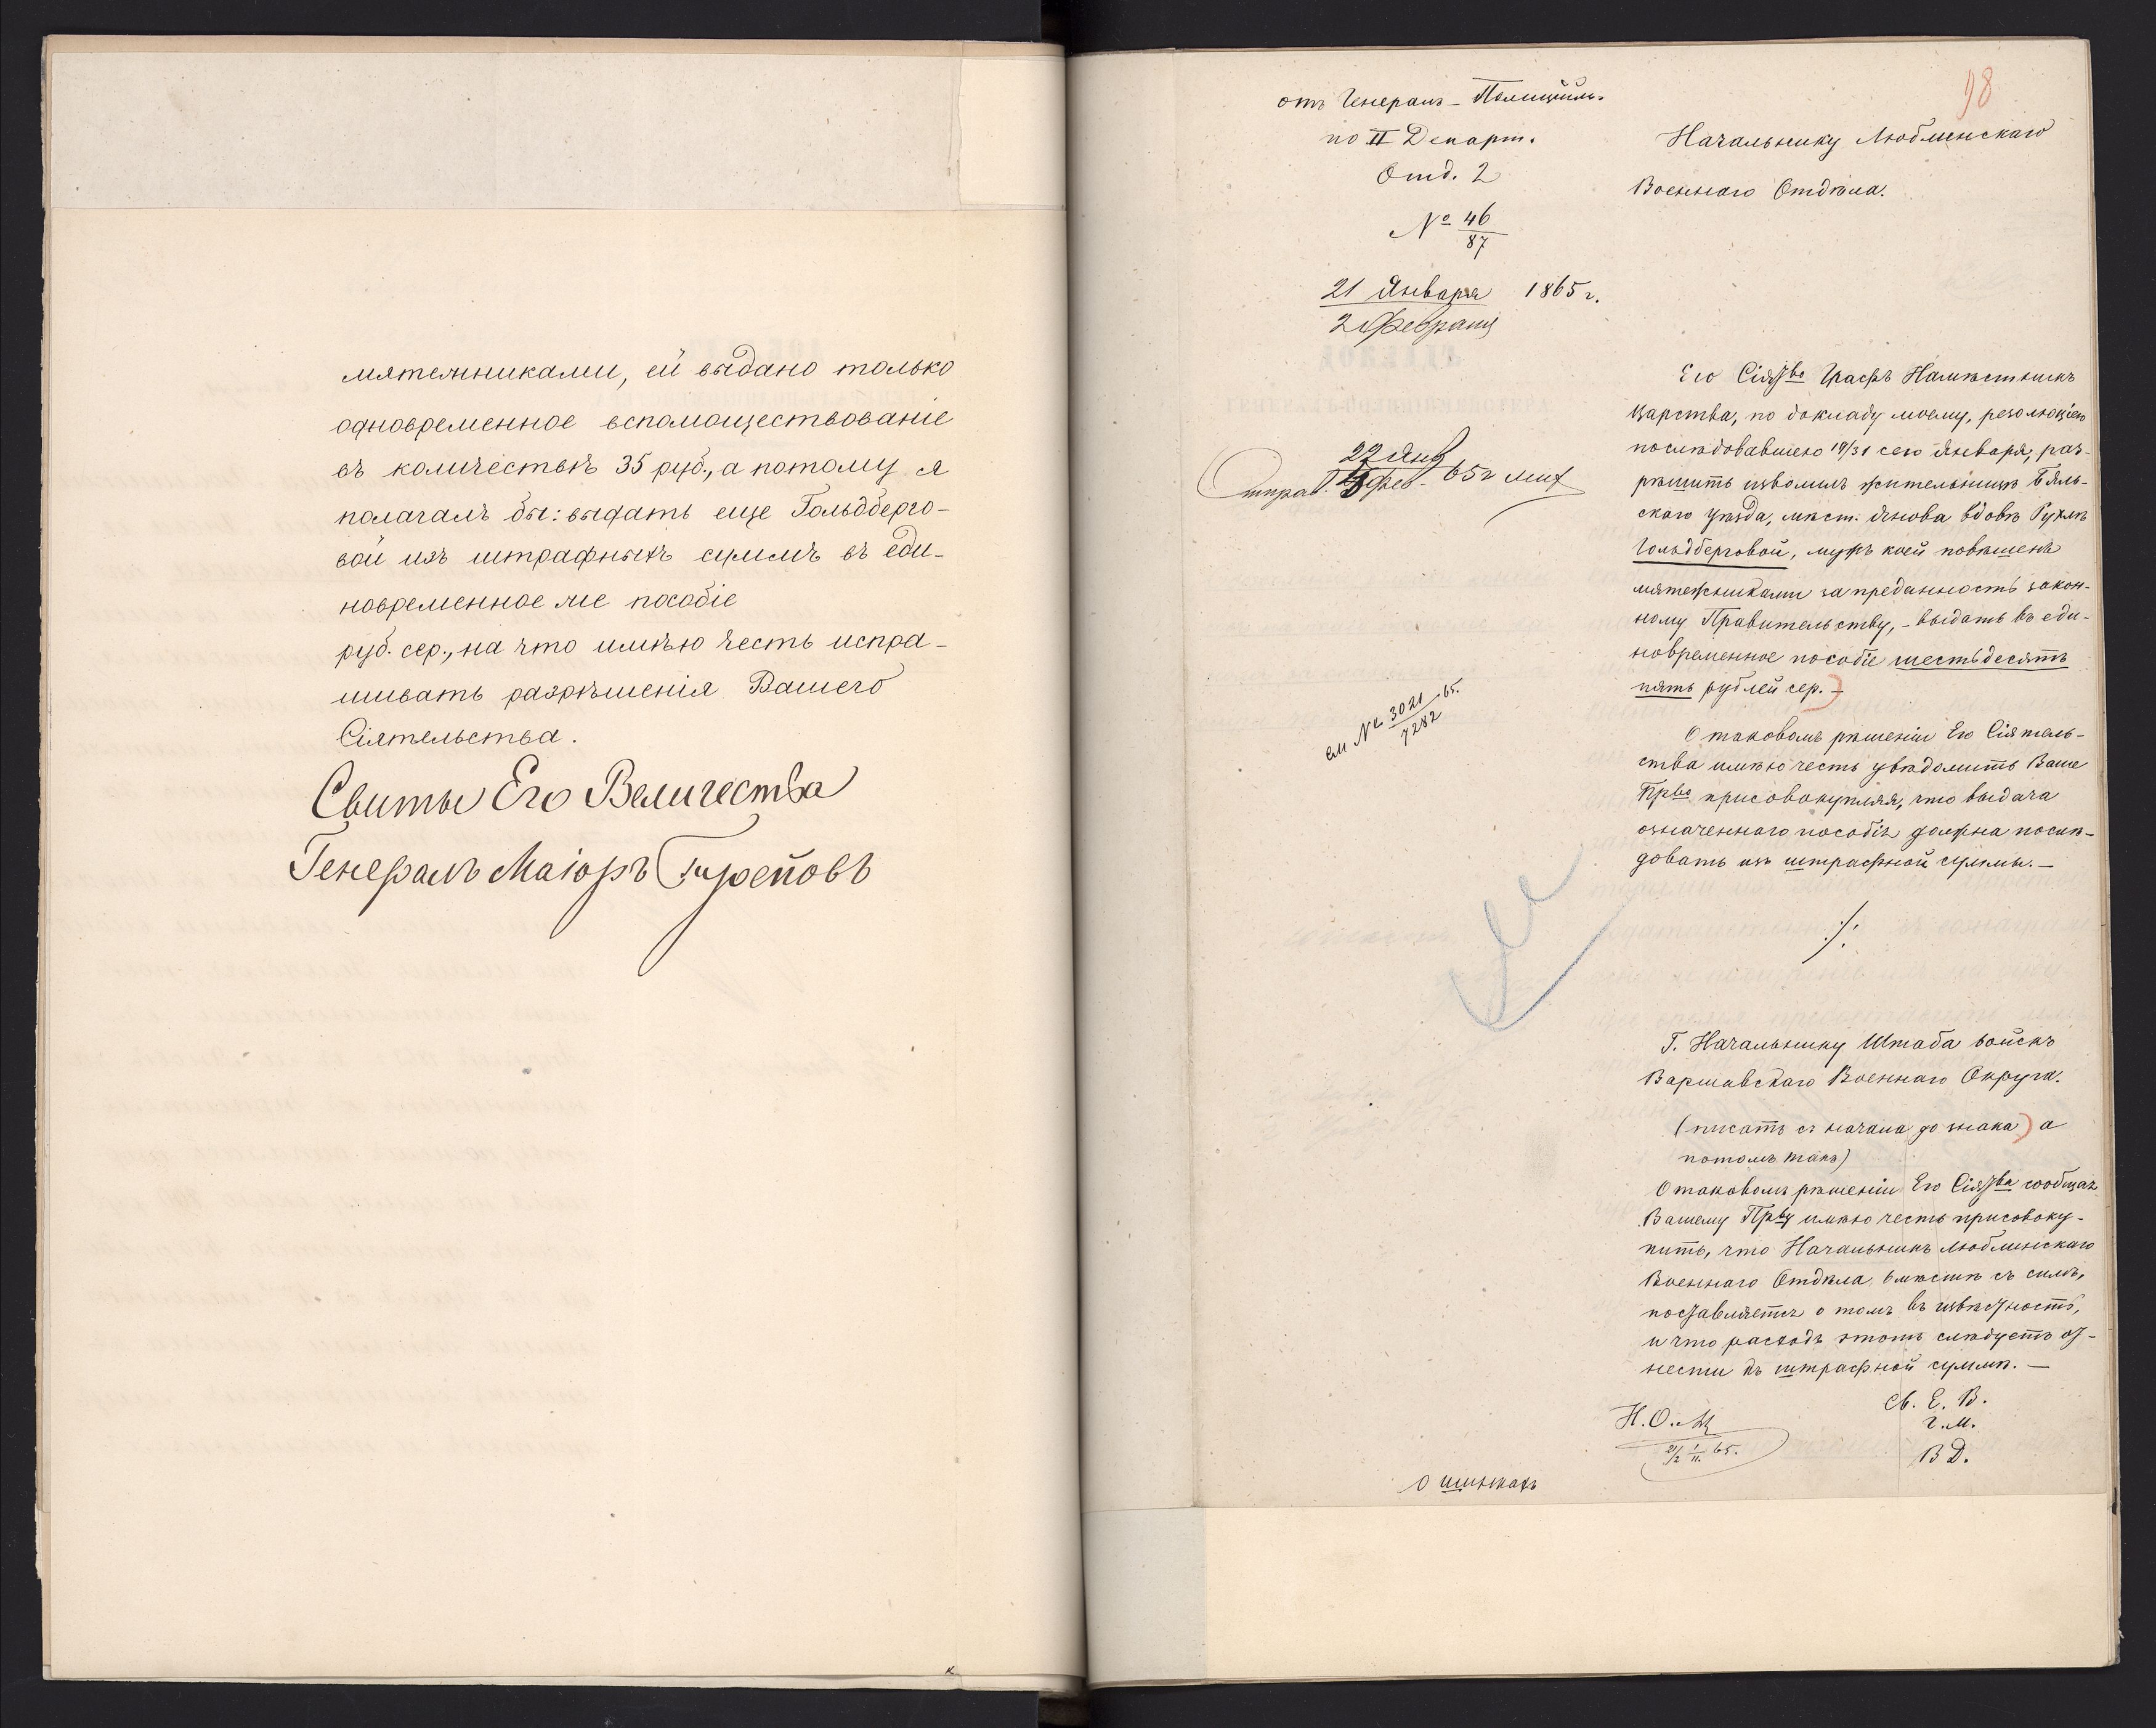 мятежниками, ей выдано только
одновременное вспомоществованіе
въ количествѣ 35 руб., а потому я
полагалъ бы: выдать еще Гольдберго-
вой изъ штрафныхъ суммъ въ еди-
новременное же пособіе
руб. сер., на что имѣю честь испра-
шивать разрѣшенія Вашего
Сіятельства.
Свиты Его Величества
Генералъ Маіоръ Треповъ
98
отъ Генералъ-Полиціим.
по II Департ.
Отд. 2
№ 46/87
21 Января 1865 г.
2 Февраля
Начальнику Люблинскаго
Военнаго Отдѣла.
22 Янв
Отправ. 3 Фев. 65 г
см № 3021/7282 65.
Его Сіят-во Графъ Намѣстникъ
Царства, по докладу моему, резолюціею
послѣдовавшею 19/31 сего Января, раз-
рѣшить изволилъ жительницѣ Бяль-
скаго уѣзда, мѣст. Янова вдовѣ Рухлѣ
Гольдберговой, мужъ коей повѣшенъ
мятежниками за преданность закон-
ному Правительству, - выдать въ еди-
новременное пособіе шестьдесятъ
пять рублей сер. —
О таковомъ рѣшеніи Его Сіятель-
ства имѣю честь увѣдомить Ваше
Пр-во присовокупляя, что выдача
означеннаго пособія должна послѣ-
довать изъ штрафной суммы. —
./.
Г. Начальнику Штаба войскъ
Варшавскаго Военнаго Округа.
(писать съ начала до знака) а
потомъ такъ)
О таковомъ рѣшеніи Его Сіят-ва сообщая
Вашему Пр-ву имѣю честь присовоку-
пить, что Начальникъ Люблинскаго
Военнаго Отдѣла, вмѣстѣ съ симъ,
поставляется о томъ въ извѣстность,
и что расходъ этотъ слѣдуетъ от-
нести къ штрафной суммѣ. —
Св. Е. В.
Г. М.
В Д.
Н. О.
21/2 I/II 65.